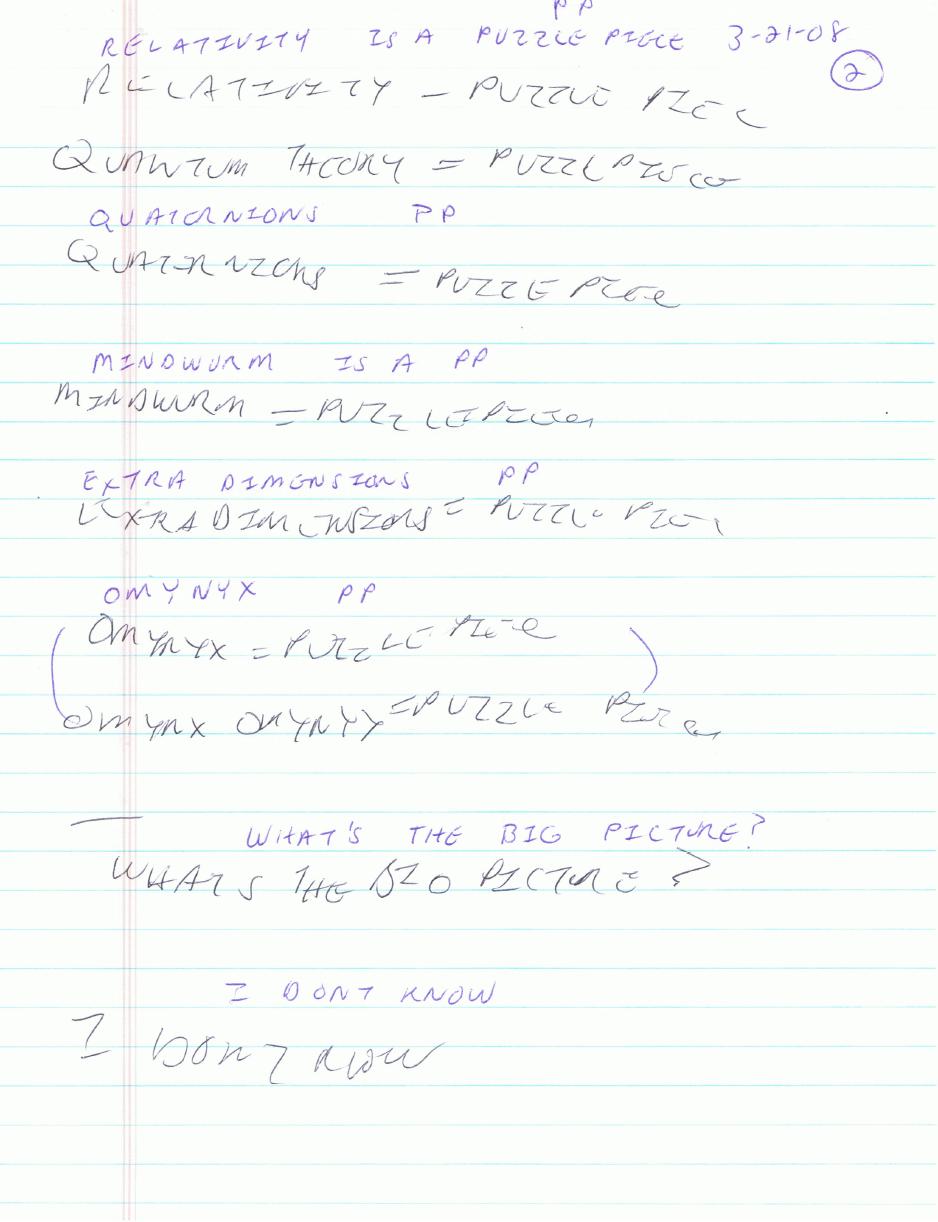 PP
RELATIVITY IS A PUZZLE PIECE 3-21-08
2
RELATIVITY - PUZZLE PIEC
QUANTUM THEORY = PUZZL PIECE
QUATERNIONS PP
QUATERNIONS = PUZZLE PIECE
MINDWURM IS A PP
MINDWURM = PUZZLE PIECE
EXTRA DIMENSIONS PP
EXTRA DIMENSIONS = PUZZLE PIECE
OMYNYX PP
OMYNYX = PUZZLE PIECE
OMYNX OMYNYY = PUZZLE PIECE
WHAT'S THE BIG PICTURE?
WHATS THE BIG PICTURE?
I DONT KNOW
I DONT KNOW